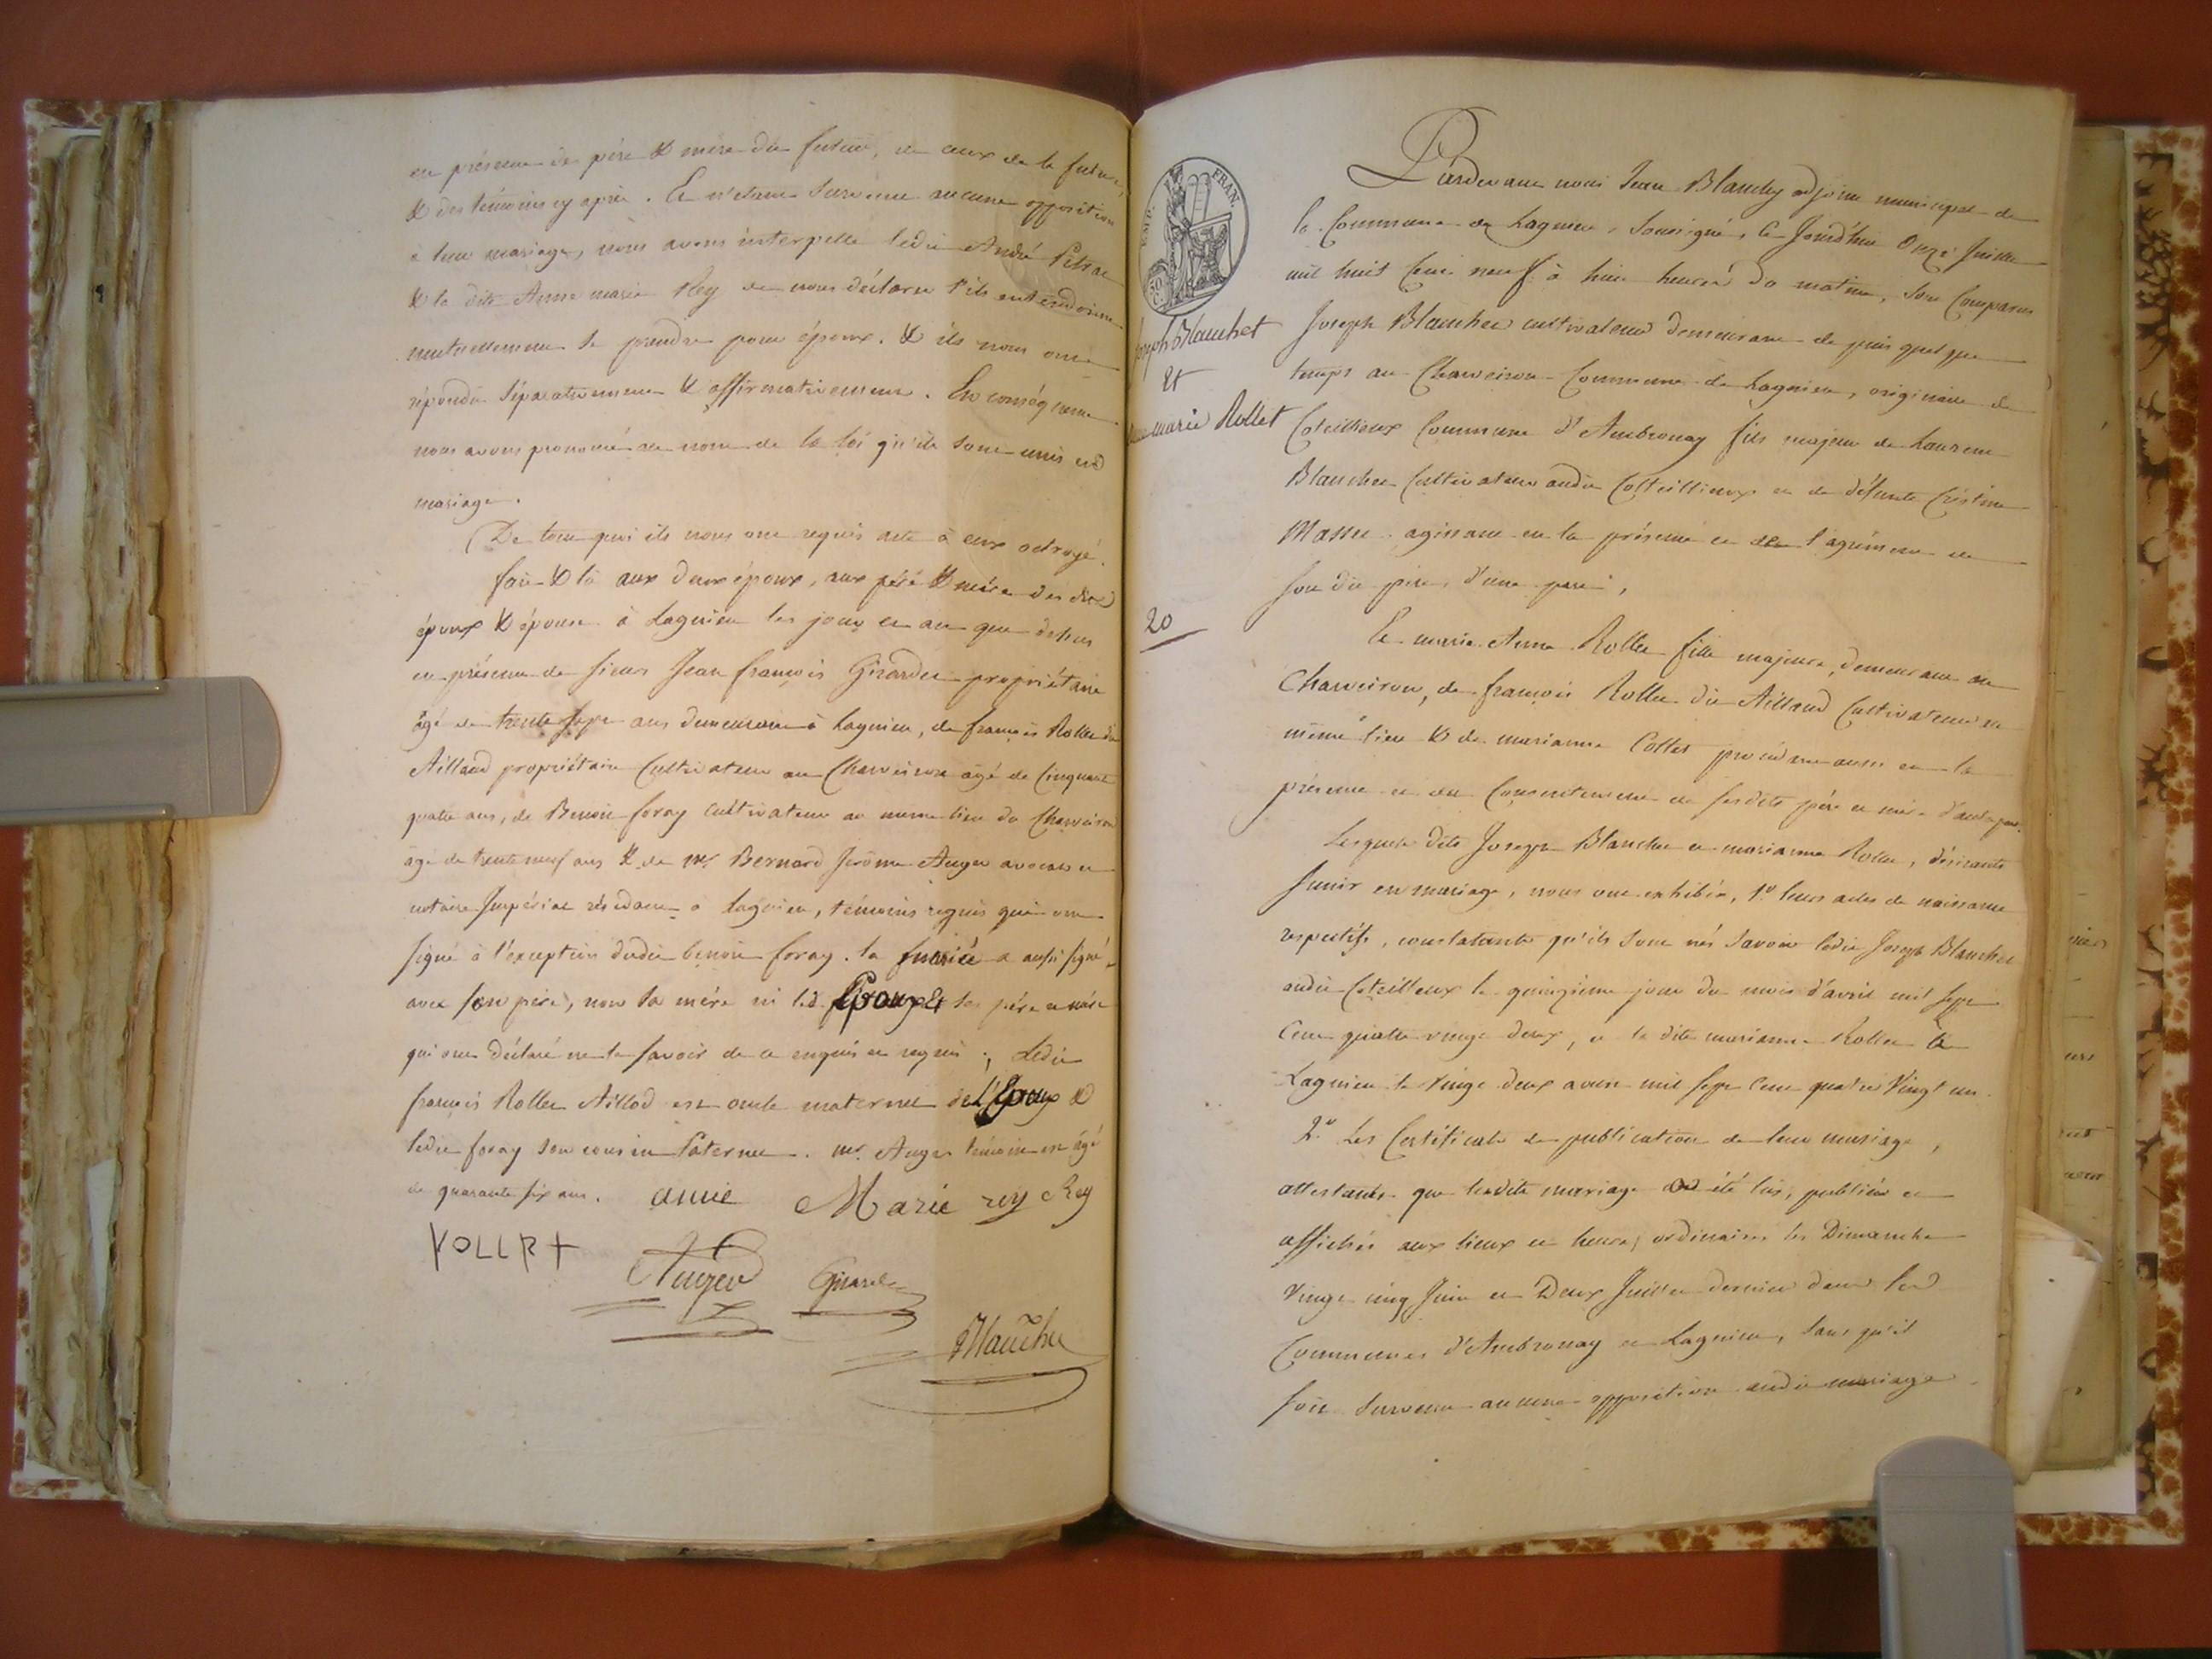 en présence des père & mère du futur, de ceux de la future,
& des témoins cy après. Et n'étant survenu aucune opposition
à leur mariage, nous avons interpellé ledit André
& la dite Anne marie Rey de nous déclarer s'ils entendoient
mutuellement se prendre pour époux. & ils nous ont
répondu séparativement & affirmativement. En conséquence
nous avons prononcé au nom de la loi qu'ils sont unis en
mariage.
De tout quoi ils nous ont requis acte à eux octroyé.
fait & lû aux deux époux, aux père & mère des dits
époux & épouse à Lagnieu les jour et an que dessus
en présence de sieurs Jean françois Girardet propriétaire
âgé de trente sept ans demeurant à Lagnieu, de françois Rollet dit
Aillaud propriétaire Cultivateur au Charveiron âgé de Cinquante
quatre ans, de Benoit foray cultivateur au même lieu du Charveiron
âgé de trente neuf ans & de mr Bernard Jerôme Auger avocat et
notaire Impérial résidant à Lagnieu, témoins requis qui ont
signé à l'exception dudit benoit foray. la mariée a aussi signé
avec son père, non sa mère ni led. Epoux Et ses père et mère
qui ont déclaré ne le savoir de ce enquis et requis ; Ledit
françois Rollet Aillod est oncle maternel de L'Epoux &
ledit foray son cousin Paternel. mr. Auger témoin est âgé
de quarante six ans. anne Marie rey Rey
Auger Girardet
Blanchet
EMP. FRAN.
Joseph Blanchet
Et
marie Rollet
20
Pardevant nous Jean Blanchy adjoint municipal de
la Commune de Lagnieu, soussigné, Ce Jourd'hui Onze Juillet
mil huit Cent neuf à huit heures du matin, sont Comparus
Joseph Blanchet cultivateur demeurant depuis quelque
temps au Charveiron Commune de Lagnieu, originaire de
Coteillieux Commune d'Ambronay fils majeur de Laurent
Blanchet Cultivateur audit Cotteillieux et de défunte Cristine
agissant en la présence et de l'agrément de
son dit père, d'une part,
Et marie Anne Rollet fille majeure, demeurant au
Charveiron, de françois Rollet dit Aillaud Cultivateur au
même lieu & de marianne Collet procédant aussi en la
présence et du Consentement de sesdits père et mère d'autre part.
Lesquels dits Joseph Blanchet et marianne Rollet, désirants
s'unir en mariage, nous ont exhibés, 1º leurs actes de naissance
respectifs, constatants qu'ils sont nés savoir ledit Joseph Blanchet
audit Coteillieux le quinzième jour du mois d'avril mil sept
Cent quatre vingt deux, et la dite marianne Rollet à
Lagnieu le vingt deux mil sept Cent quatre Vingt un.
2º Les Certificats de publication de leur mariage,
attestants que lesdits mariage été lus, publiés et
affichés aux lieux et heures ordinaires les Dimanche
Vingt cinq Juin et Deux Juillet dernier dans les
Communes d'Ambronay et Lagnieu, sans qu'il
soit survenu aucune opposition audit mariage